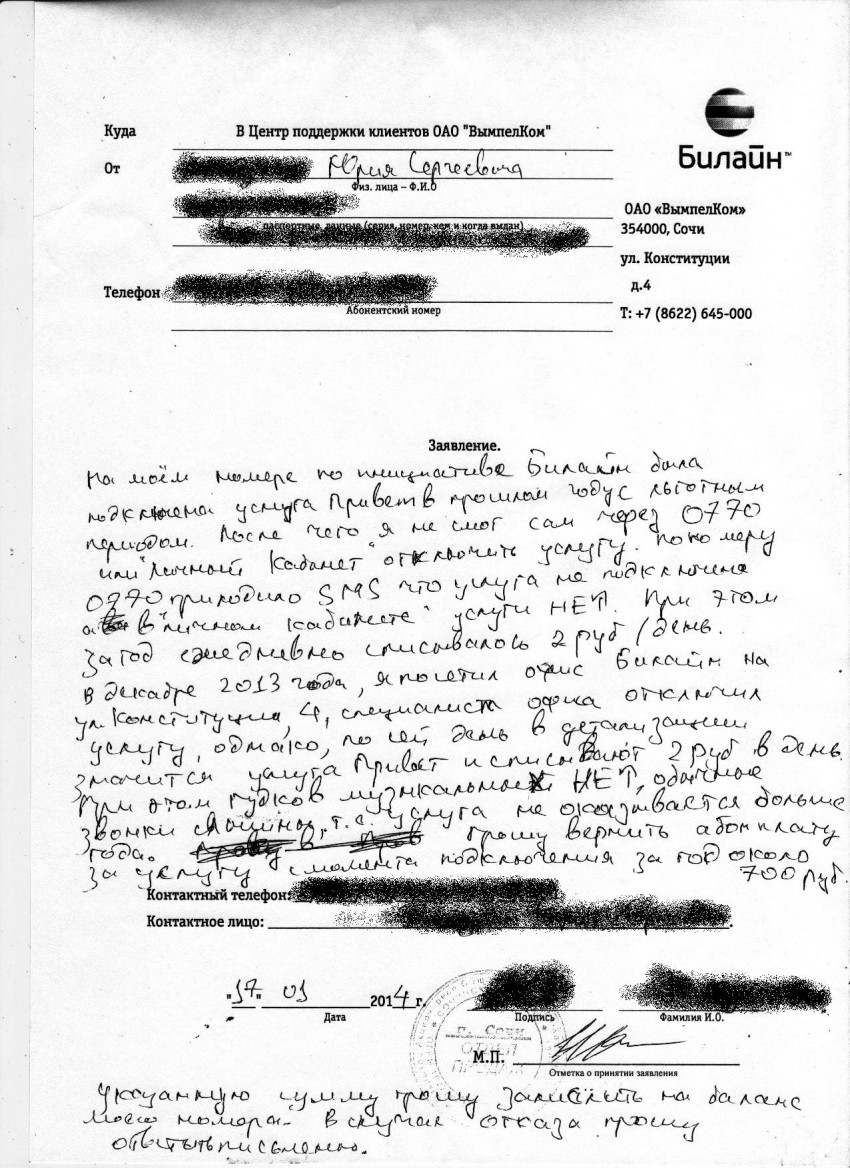 Билайн™
Куда В Центр поддержки клиентов ОАО "ВымпелКом"
От Юрия Сергеевича
Физ. лица – Ф.И.О
паспортные данные (серия, номер, кем и когда выдан)
Телефон
Абонентский номер
ОАО «ВымпелКом»
354000, Сочи
ул. Конституции
д.4
Т: +7 (8622) 645-000
Заявление.
На моём номере по инициативе Билайн была
подключена услуга Привет в прошлом году с льготным
периодом. После чего я не смог сам через 0770
или "Личный кабинет" отключить услугу. По номеру
0770 приходило SMS что услуга не подключена
а в "личном кабинете" услуги НЕТ. При этом
за год ежедневно списывалось 2 руб/день.
В декабре 2013 года, я посетил офис Билайн на
ул. Конституции, 4, специалист офиса отключил
услугу, однако, по сей день в детализации
значится услуга Привет и списывают 2 руб в день.
При этом гудков музыкальных НЕТ, обычные
звонки слышно, т.е. услуга не оказывается больше
года. прошу вернуть абонплату
за услугу с момента подключения за год около
700 руб.
Контактный телефон:
Контактное лицо:
"17" 01 2014 г.
Дата Подпись Фамилия И.О.
г. Сочи
ОТДЕЛ
ПРОДАЖ
М.П.
Отметка о принятии заявления
Указанную сумму прошу зачислить на баланс
моего номера. В случае отказа прошу
ответить письменно.